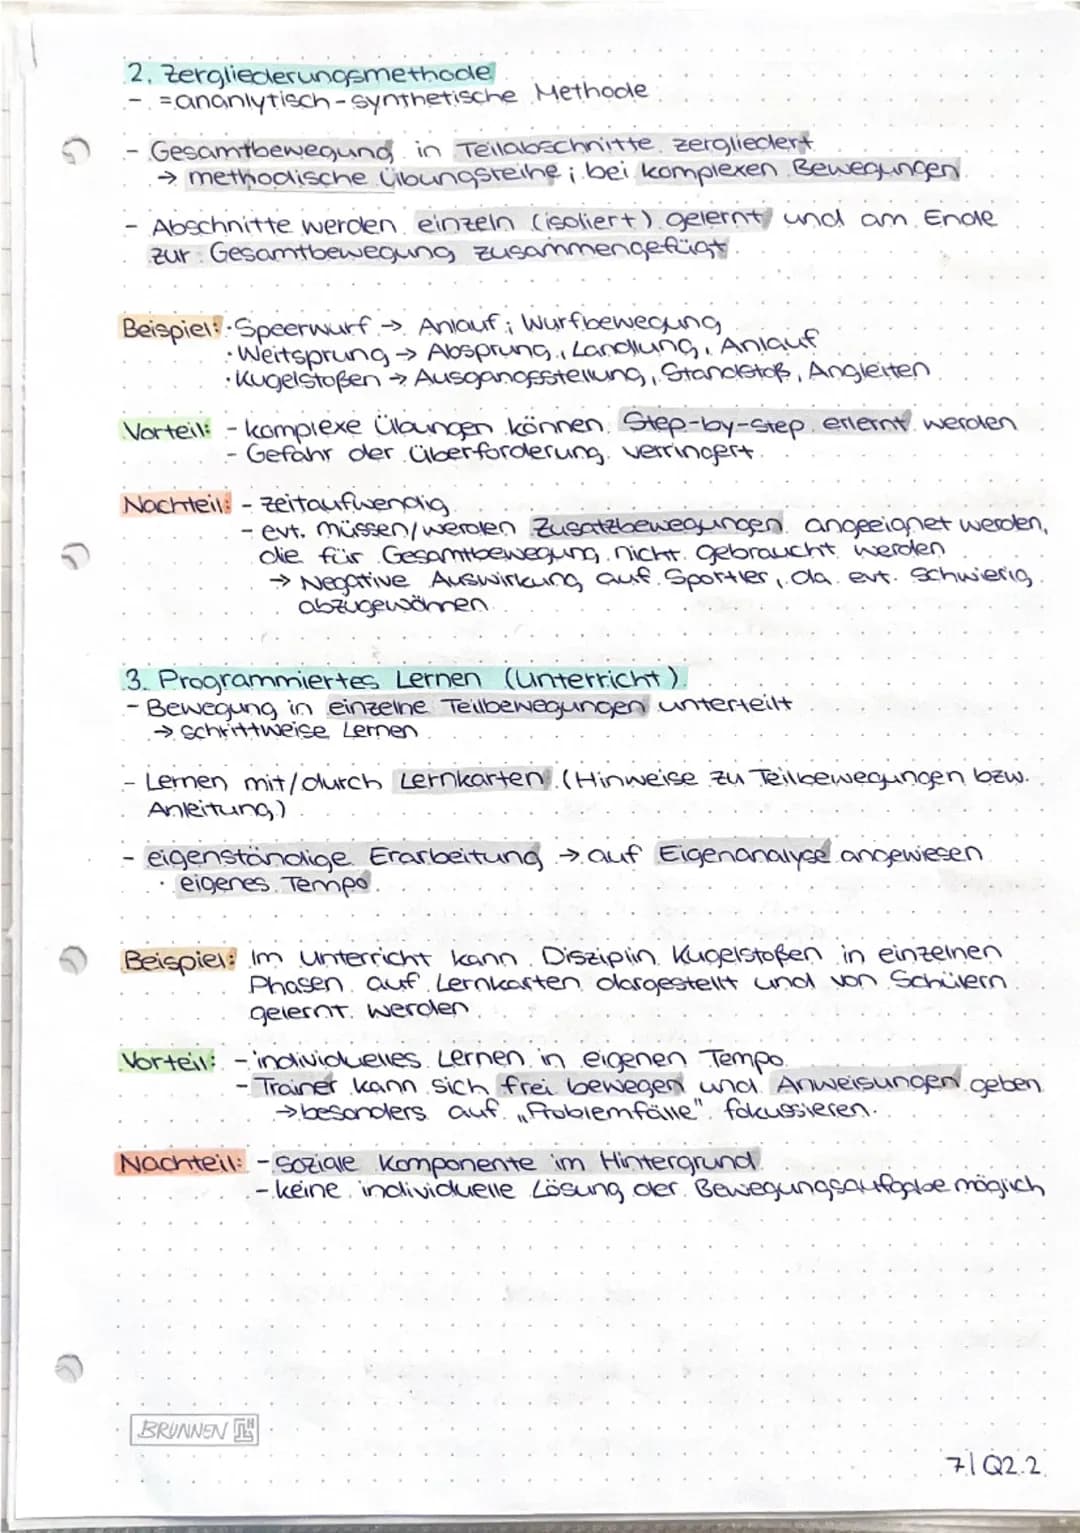 2. Zergliederungsmethode
- = ananlytisch-synthetische Methode
- Gesamtbewegung in Teilabschnitte zergliedert
→ methodische Übungsreihe; bei komplexen Bewegungen
- Abschnitte werden einzeln (isoliert) gelernt und am Ende
zur Gesamtbewegung zusammengefügt
Beispiel: · Speerwurf → Anlauf; Wurfbewegung
· Weitsprung → Absprung, Landung, Anlauf
· Kugelstoßen → Ausgangsstellung, Standstoß, Angleiten
Vorteil: - komplexe Übungen können Step-by-Step erlernt werden
- Gefahr der Überforderung verringert
Nachteil: - zeitaufwendig
- evt. müssen/werden Zusatzbewegungen angeeignet werden,
die für Gesamtbewegung nicht gebraucht werden
→ Negative Auswirkung auf Sportler, da evt. schwierig
abzugewöhnen
3. Programmiertes Lernen (Unterricht)
- Bewegung in einzelne Teilbewegungen unterteilt
→ schrittweise Lernen
- Lernen mit/durch Lernkarten (Hinweise zu Teilbewegungen bzw.
Anleitung)
- eigenständige Erarbeitung → auf Eigenanalyse angewiesen
· eigenes Tempo
Beispiel: Im Unterricht kann Disziplin Kugelstoßen in einzelnen
Phasen auf Lernkarten dargestellt und von Schülern
gelernt werden
Vorteil: - individuelles Lernen in eigenen Tempo
- Trainer kann sich frei bewegen und Anweisungen geben
→ besonders auf „Problemfälle" fokussieren.
Nachteil: - soziale Komponente im Hintergrund
- keine individuelle Lösung der Bewegungsaufgabe möglich
BRUNNEN
7/ Q2.2